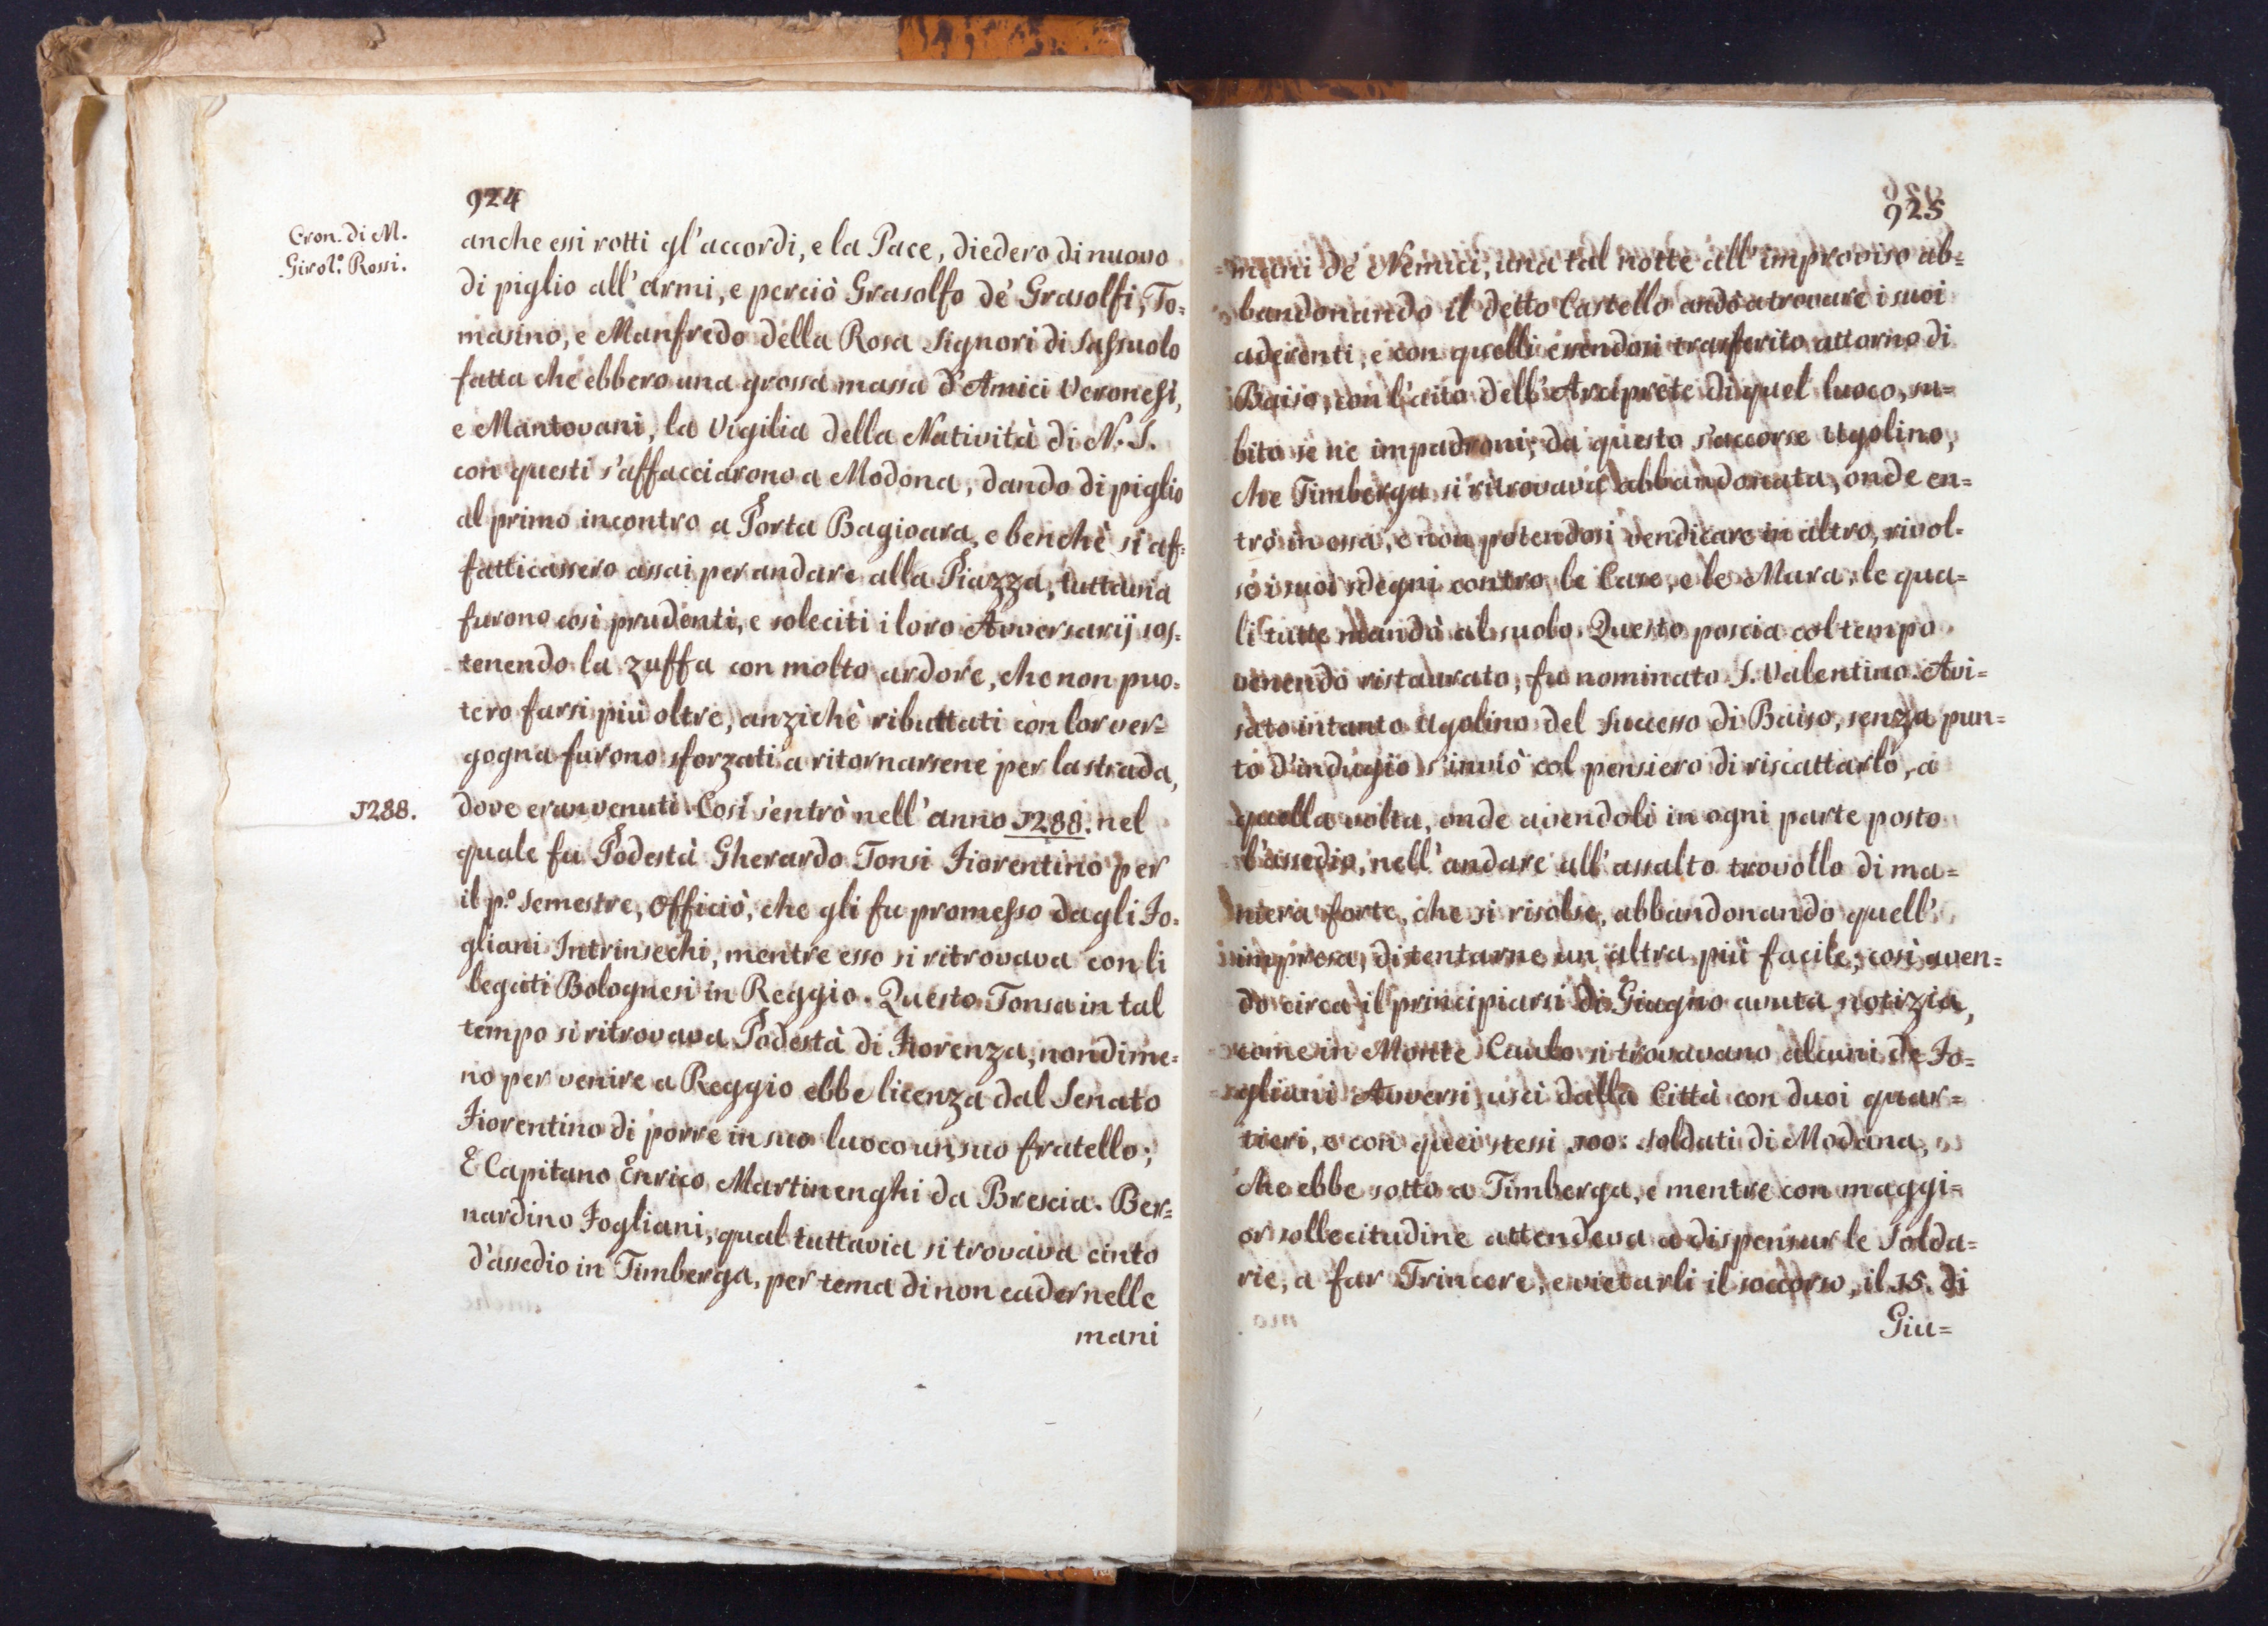 924
Cron. di M.
Girol.º Rossi.
anche essi rotti gl'accordi, e la Pace, diedero di nuovo
di piglio all'armi, e perciò Grasolfo de' Grasolfi, To=
masino, e Manfredo della Rosa Signori di Sassuolo
fatta che ebbero una grossa massa d'Amici Veronesi,
e Mantovani, la Vigilia della Natività di N. S.
con questi s'affacciarono a Modona, dando di piglio
al primo incontro a Porta Bagioara, e benchè si af=
fatticassero assai per andare alla Piazza, tuttavia
furono così prudenti, e soleciti i loro Avversarij sos=
tenendo la zuffa con molto ardore, che non puo=
tero farsi più oltre, anzichè ributtati con lor ver=
gogna furono sforzati a ritornarsene per la strada,
1288.
dove eran venuti. Così s'entrò nell'anno 1288. nel
quale fu Podestà Gherardo Tonsi Fiorentino per
il p.º Semestre, Officiò, che gli fu promesso dagli Fo=
gliani Intrinsechi, mentre esso si ritrovava con li
legati Bolognesi in Reggio. Questo Tonsa in tal
tempo si ritrovava Podestà di Fiorenza, nondime=
no per venire a Reggio ebbe licenza dal Senato
Fiorentino di porre in suo luoco un suo fratello;
E Capitano Enrico Martinenghi da Brescia. Ber=
nardino Fogliani, qual tuttavia si trovava cinto
d'assedio in Timberga, per tema di non cader nelle
mani
925
mani de' Nemici, una tal notte all'improviso ab=
bandonando il detto Castello andò a trovare i suoi
aderenti, e con quelli erendosi trasferito attorno di
Baiso, con l'aito dell'Arciprete di quel luoco, su=
bito se ne impadroni; da questo s'accorse Ugolino,
che Timberga si ritrovava abbandonata, onde en=
trò in essa, e non potendosi vendicare in altro, rivol=
sè i suoi sdegni contro le Case, e le Mura, le qua=
li tutte mandò al suolo. Questo poscia col tempo
venendo ristaurato, fu nominato S. Valentino. Avi=
sato intanto Ugolino del Successo di Baiso, senza pun=
to d'indugio s'inviò col pensiero di riscattarlo, a
quella volta, onde avendoli in ogni parte posto
l'assedio, nell'andare all'assalto trovollo di ma=
niera forte, che si risolse, abbandonando quell'
impresa, di tentarne un altra più facile; così aven=
do circa il principiarsi di Giugno avuta notizia,
come in Monte Caulo si trovavano alcuni de Fo=
gliani Avversi, usci dalla Città con duoi quar=
tieri, e con quei stessi 100. soldati di Modana,
che ebbe sotto a Timberga, e mentre con maggi=
or sollecitudine attendeva a dispensar le Solda=
rie, a far Trincere, e vietarli il soccorso, il 15. di
Giu=